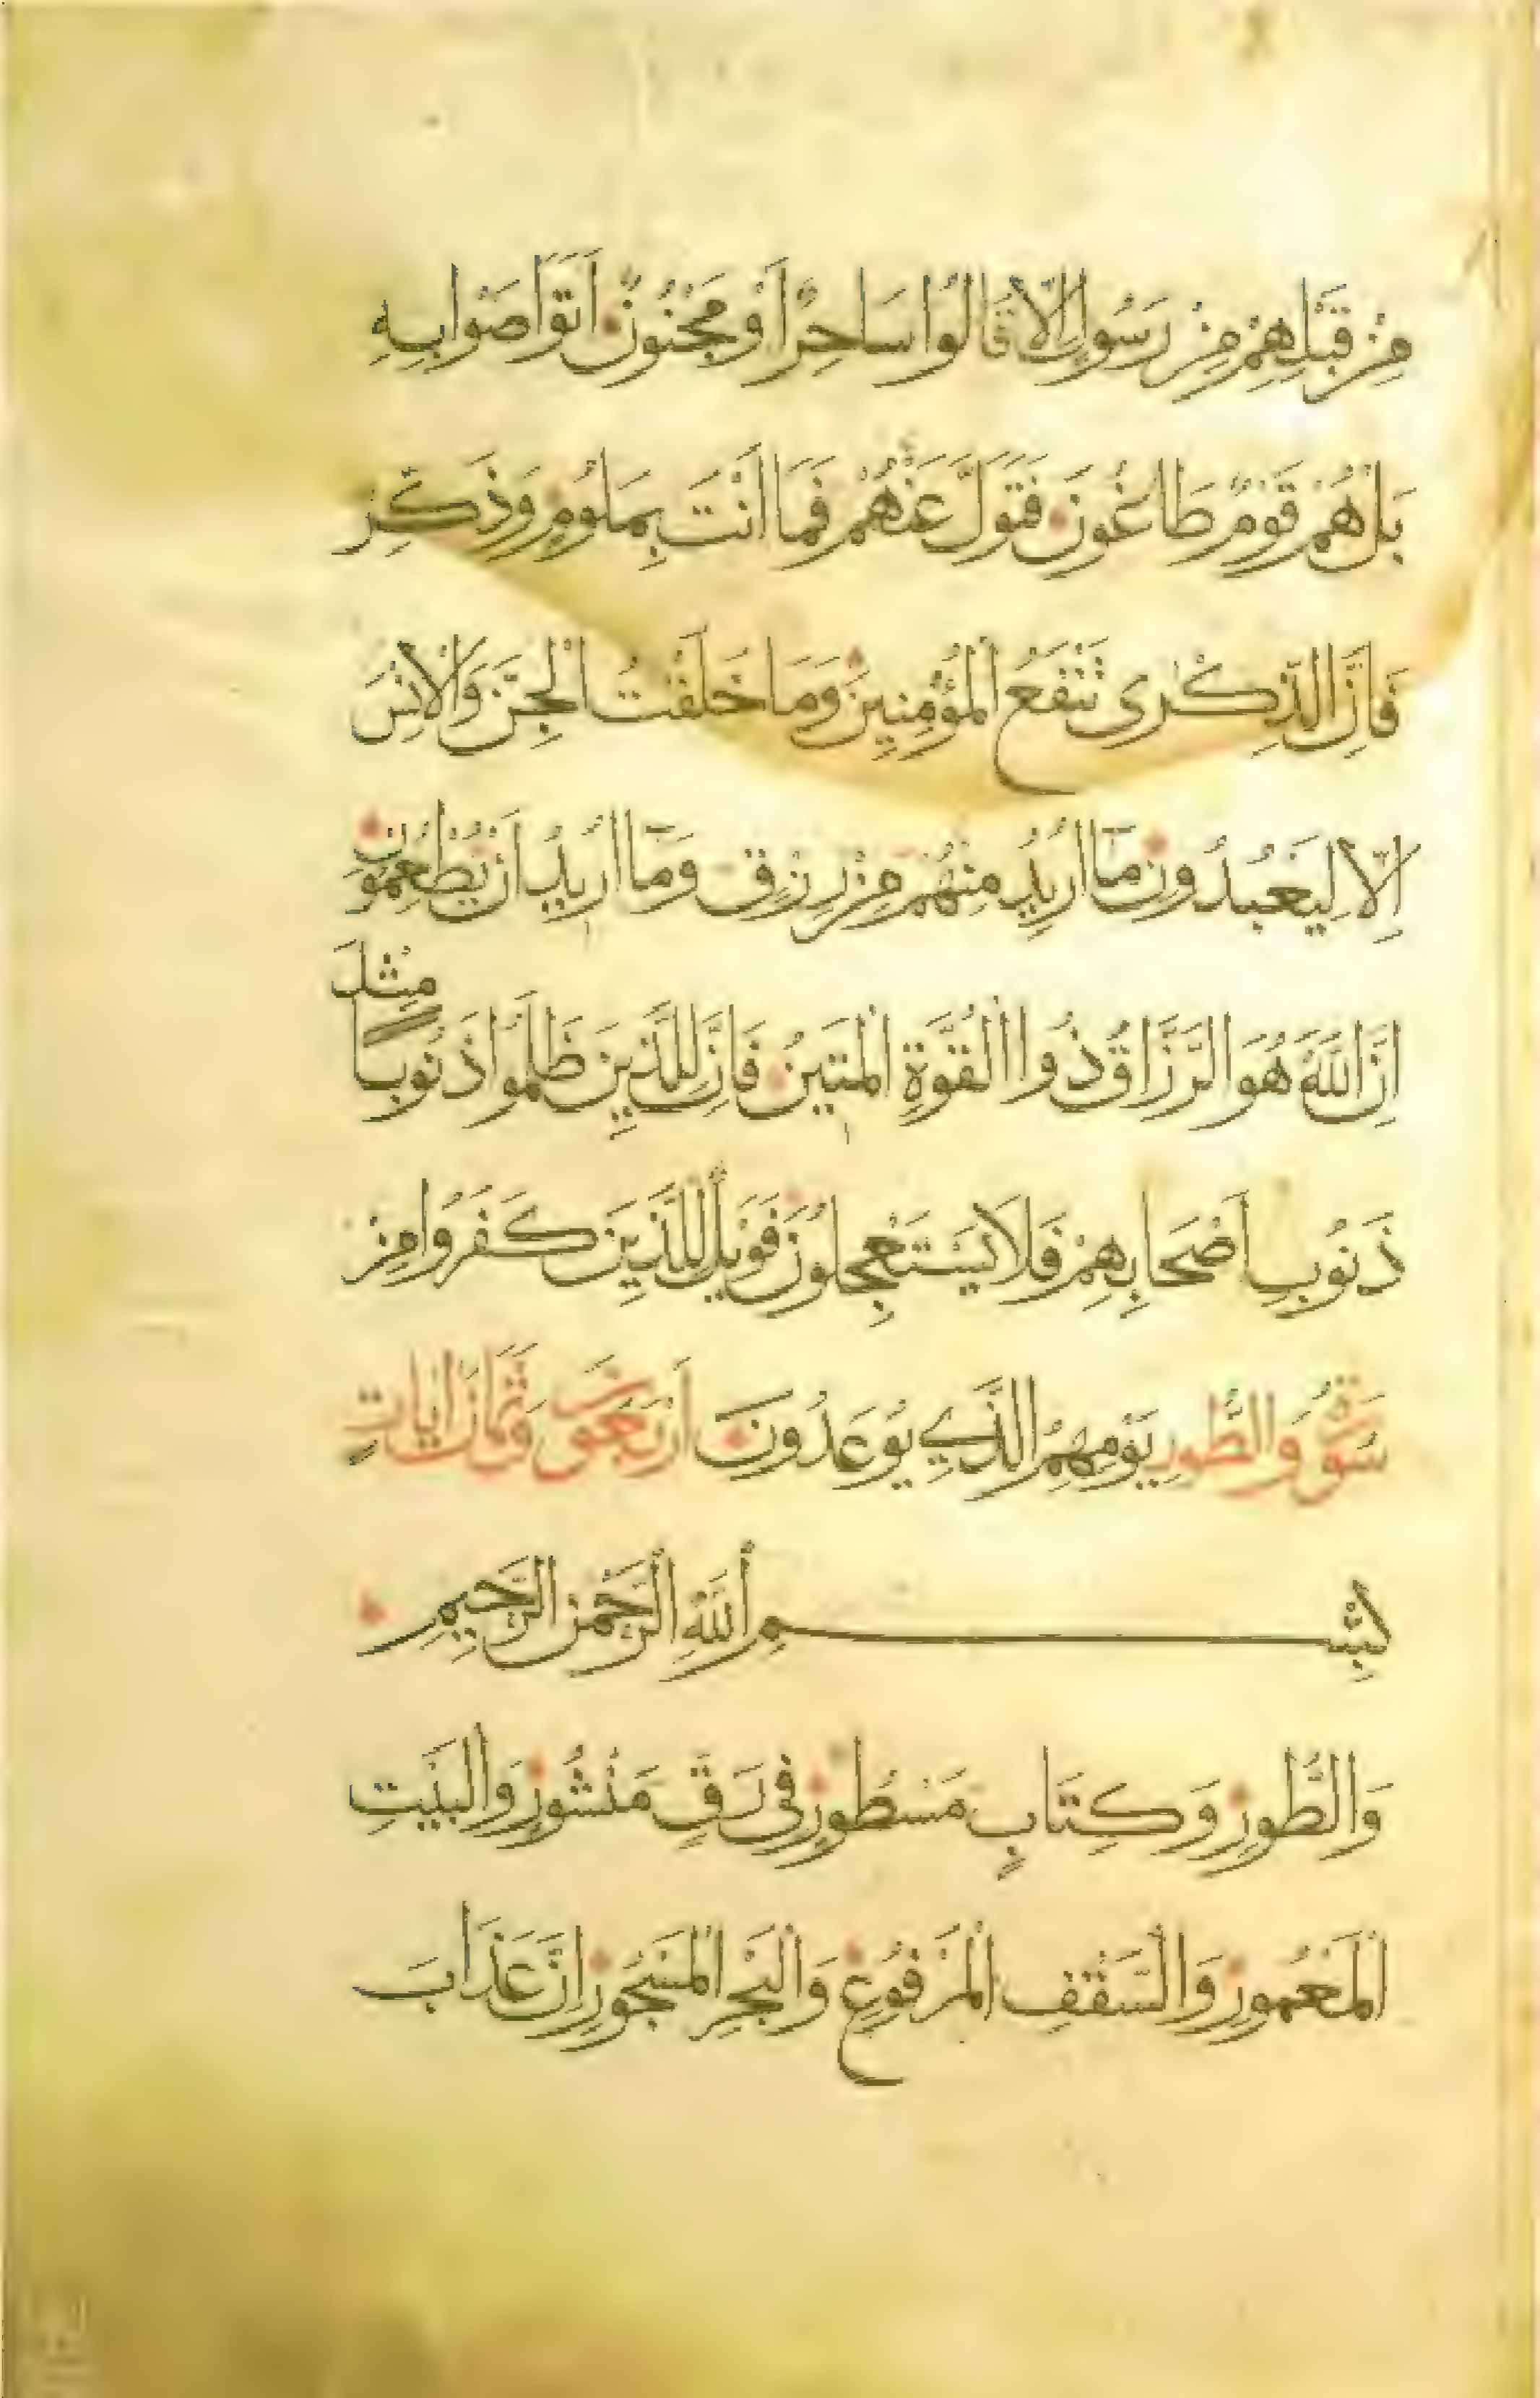 مِنْ قَبْلِهِمْ مِنْ رَسُولٍ اِلَّا قَالُوا سَاحِرٌ اَوْ مَجْنُونٌ اَتَوَاصَوْا بِهِ
بَلْ هُمْ قَوْمٌ طَاغُونَ فَتَوَلَّ عَنْهُمْ فَمَا اَنْتَ بِمَلُومٍ وَذَكِّرْ
فَاِنَّ الذِّكْرٰى تَنْفَعُ الْمُؤْمِنِينَ وَمَا خَلَقْتُ الْجِنَّ وَالْاِنْسَ
اِلَّا لِيَعْبُدُونِ مَٓا اُرِيدُ مِنْهُمْ مِنْ رِزْقٍ وَمَٓا اُرِيدُ اَنْ يُطْعِمُونِ
اِنَّ اللّٰهَ هُوَ الرَّزَّاقُ ذُوا الْقُوَّةِ الْمَتِينُ فَاِنَّ لِلَّذِينَ ظَلَمُوا ذَنُوبًا مِثْلَ
ذَنُوبِ اَصْحَابِهِمْ فَلَا يَسْتَعْجِلُونَ فَوَيْلٌ لِلَّذِينَ كَفَرُوا مِنْ
سُورَةُ وَالطُّورِ يَوْمِهِمُ الَّذِي يُوعَدُونَ اَرْبَعُونَ وَثَمَانُ اٰيَاتٍ
بِسْمِ اللّٰهِ الرَّحْمٰنِ الرَّحِيمِ
وَالطُّورِ وَكِتَابٍ مَسْطُورٍ فِى رَقٍّ مَنْشُورٍ وَالْبَيْتِ
الْمَعْمُورِ وَالسَّقْفِ الْمَرْفُوعِ وَالْبَحْرِ الْمَسْجُورِ اِنَّ عَذَابَ